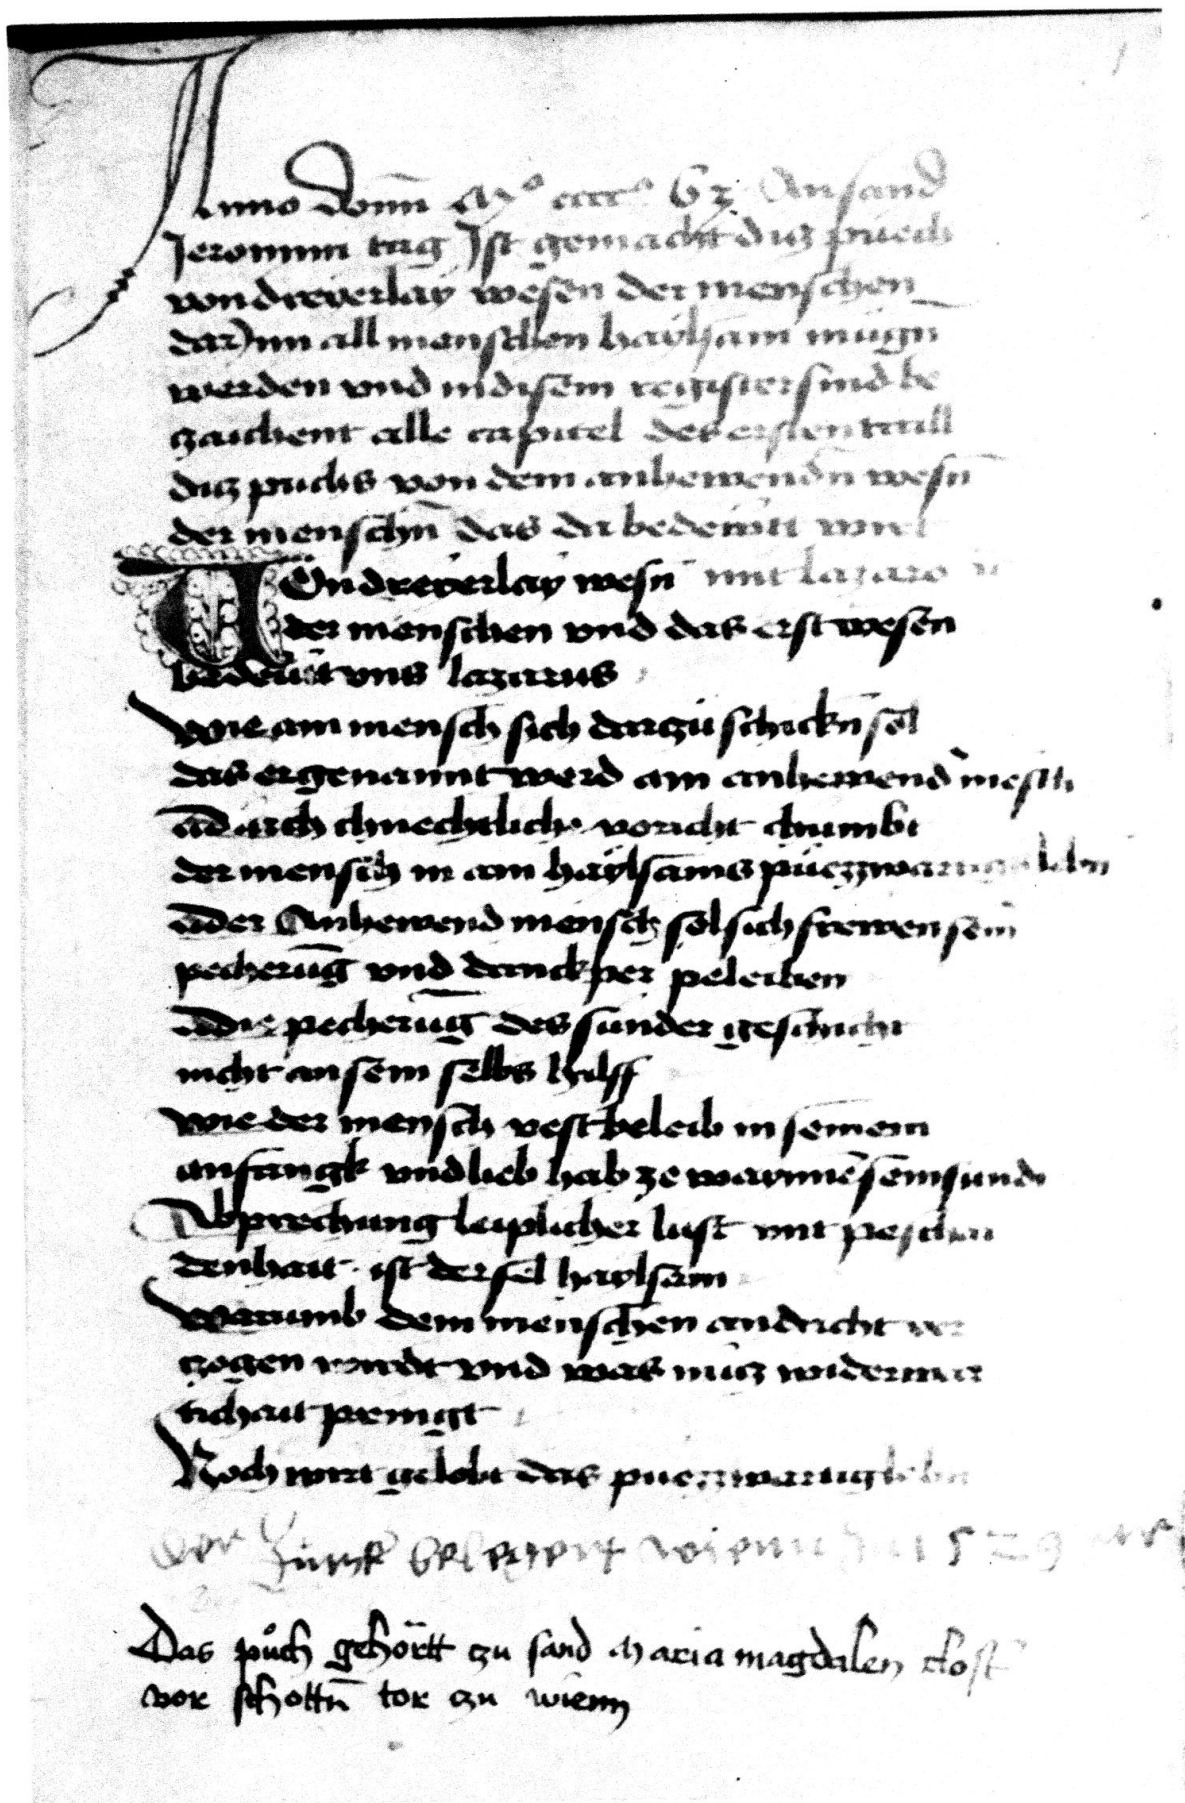 Anno domī M° cccc° 63 An sand
Jeronimi tag Ist gemacht diz puech
von dreyerlay wesen der menschen
darJnn all menschen haylsam mügn̄
werden vnd in disem register sind be
zaichent alle capitel des ersten taill
diz puchs von dem anhewendn̄ wesn̄
der menschn̄ das da bedewtt wirt
Von dreyerlay wesn̄ mit lazaro
der menschen vnd das erst wesen
bedeüt vns lazarus
Wie ain mensch sich darzu schickn̄ sol
das er genannt werd ain anhewend mēsch
durch chnechtliche voricht chumbt
der mensch in ain haylsams püezzwartigs lebn
der Anhewend mensch sol sich frewen sein̄
pecherūg vnd danckper peleiben
die pecherūg des sunder geschicht
nicht an sein selbs hilff
Wie der mensch vest beleib in seinem
anfangk vnd lieb hab ze waynnē sein sund
Abprechung leiplicher lust mit peschai
denhait ist der sel haylsam
Warumb dem menschen andacht ver
zogen wirdt vnd was nucz widerwar
tichait pringt
Noch wirt gelobt das puezzwartig lebn
der Türck belegert wienn 1529
Das půch gehörtt zu sand Maria magdalen clost̄
vor schottn̄ tor zu wienn